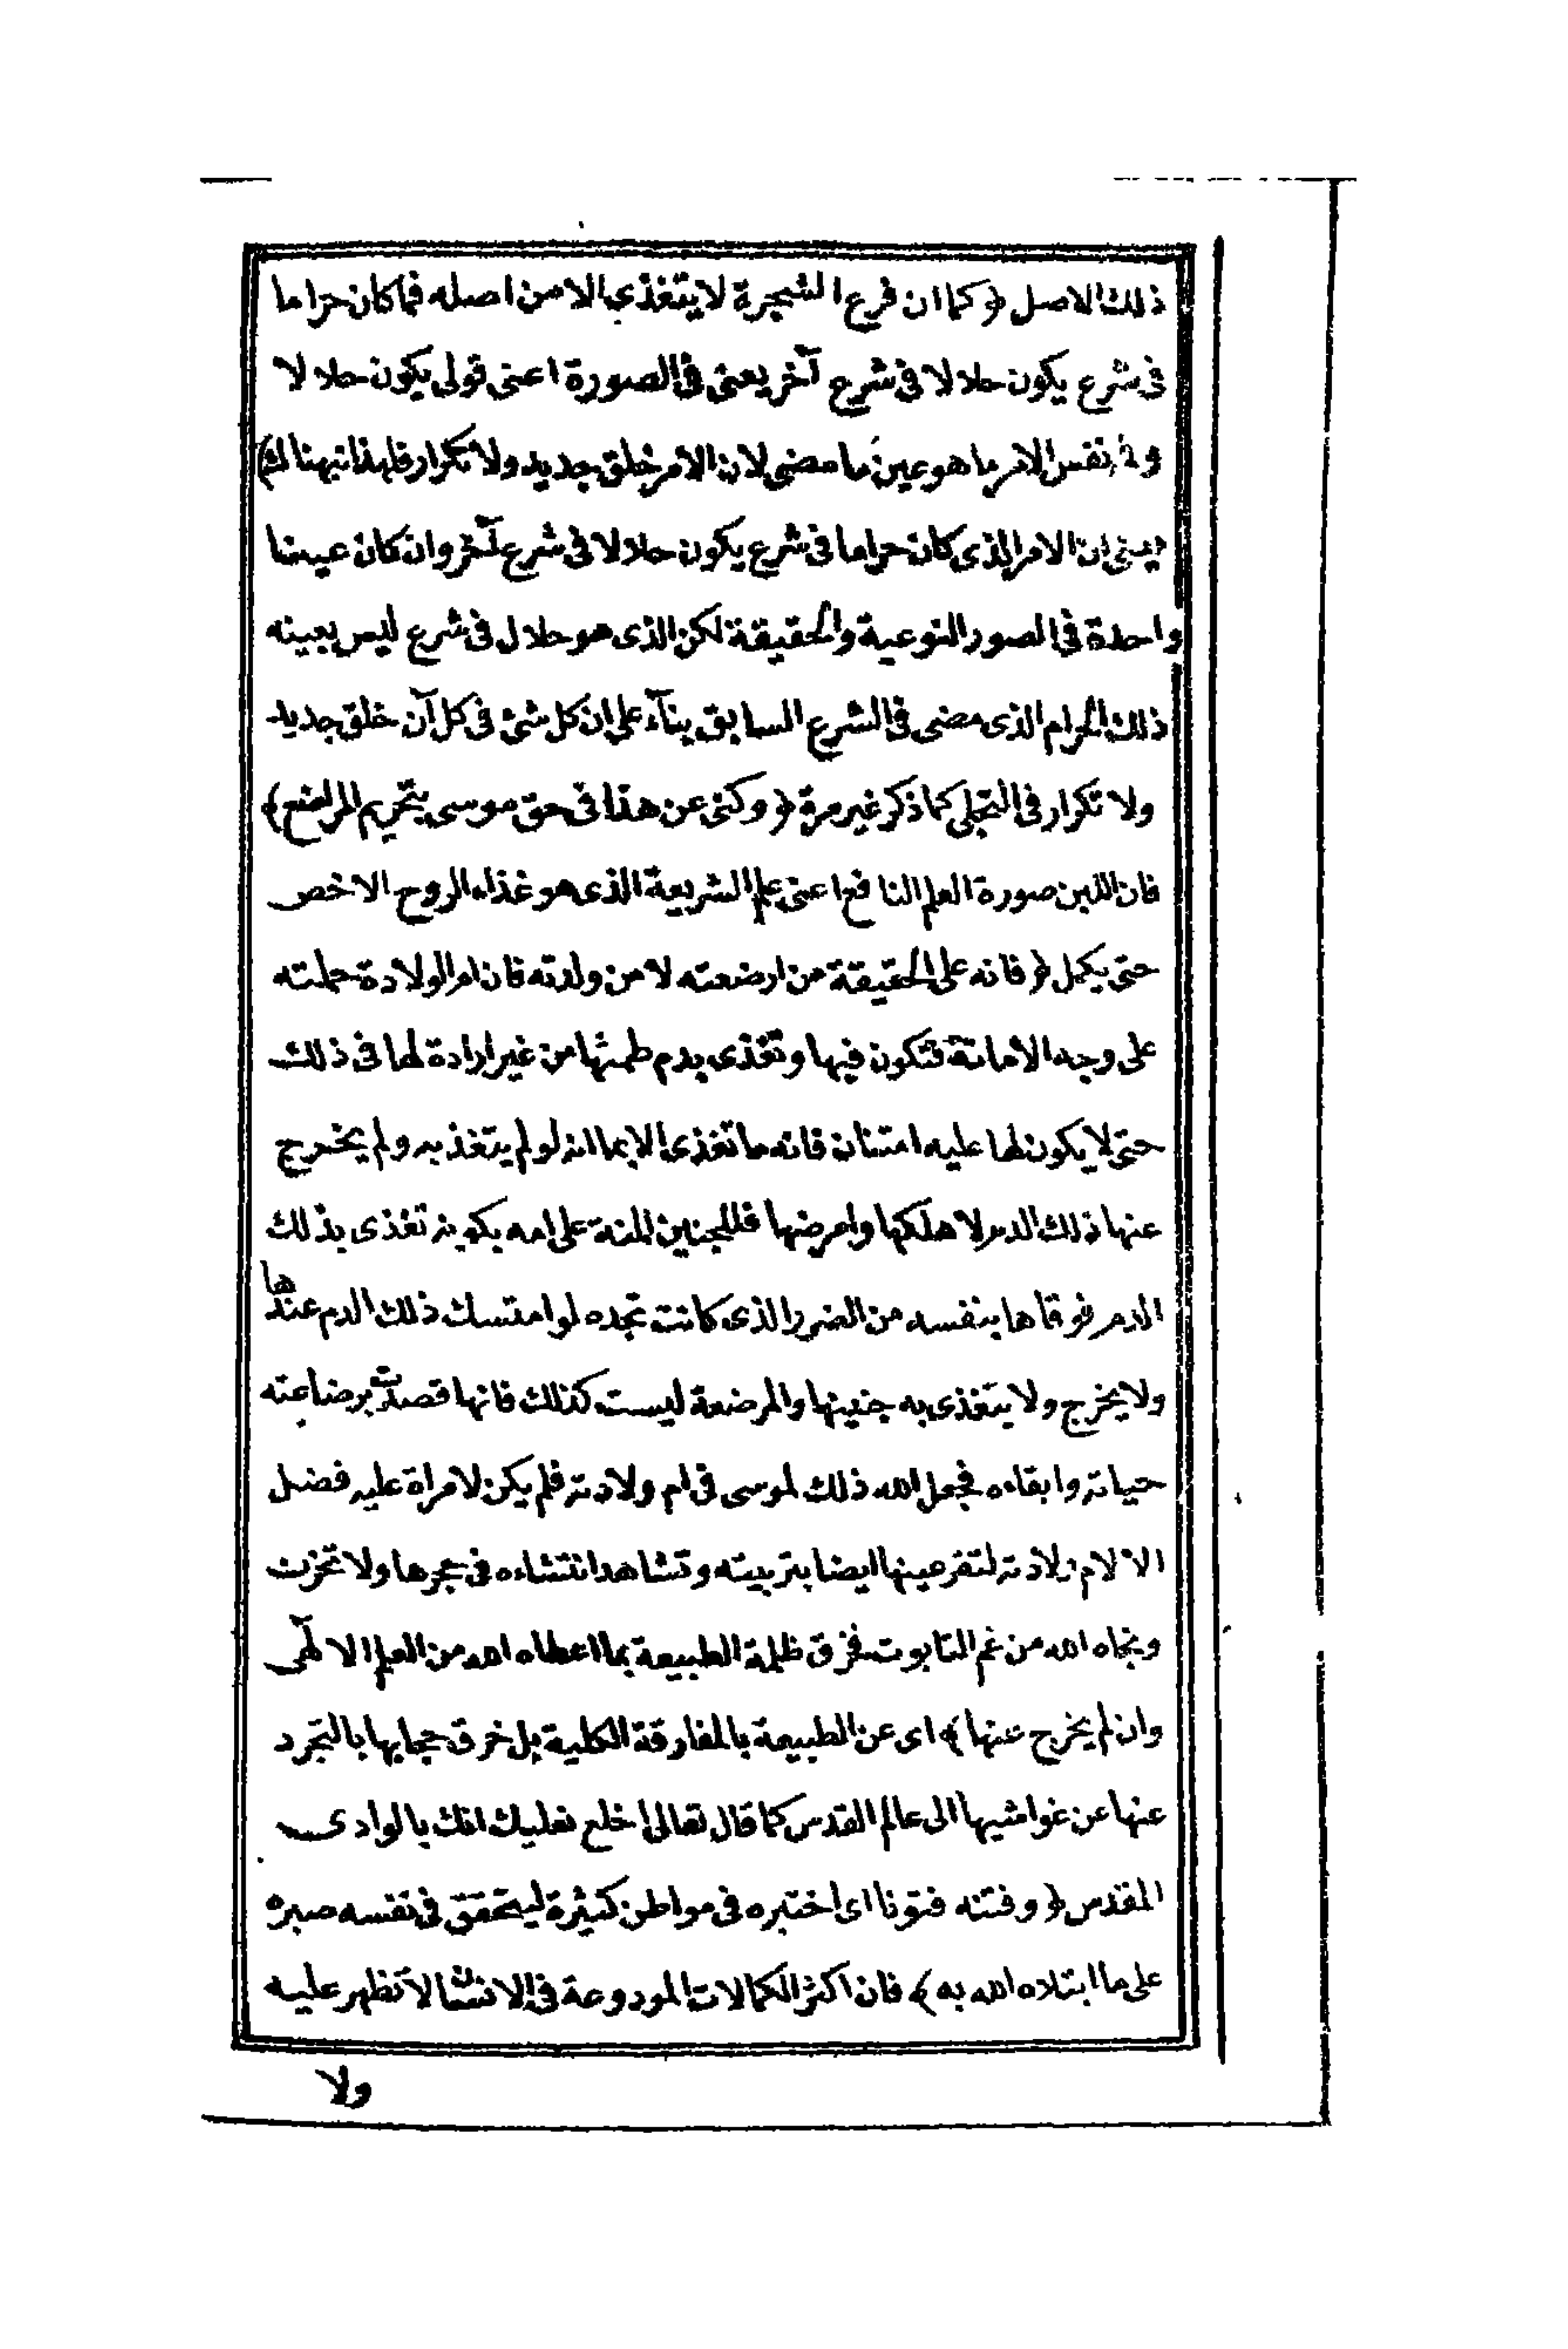 ذلك الاصل ﴿ كما ان فرع الشجرة لا يتغذى الا من اصله فما كان حراما
فى شرع يكون حلالا فى شرع آخر يعنى فى الصورة اعنى قولى يكون حلالا
وفى نفس الامر ما هو عين ما مضى لان الامر خلق جديد ولا تكرار فلهذا نبهناك ﴾
يعنى ان الامر الذى كان حراما فى شرع يكون حلالا فى شرع آخر وان كان عينا
واحدة فى الصور النوعية والحقيقة لكن الذى هو حلال فى شرع ليس بعينه
ذلك الحرام الذى مضى فى الشرع السابق بنآء على ان كل شئ فى كل آن خلق جديد
ولا تكرار فى التجلى كما ذكر غير مرة ﴿ وكنى عن هذا فى حق موسى بتحريم المراضع ﴾
فان اللبن صورة العلم النافع اعنى علم الشريعة الذى هو غذاء الروح الاخص
حتى يكمل ﴿ فانه على الحقيقة من ارضعته لا من ولدته فان ام الولادة حملته
على وجه الامانة فتكون فيها وتغذى بدم طمثها من غير ارادة لها فى ذلك
حتى لا يكون لها عليه امتنان فانه ما تغذى الا بما انه لو لم يتغذ به ولم يخرج
عنها ذلك الدم لاهلكها وامرضها فللجنين المنة على امه بكونه تغذى بذلك
الدم فوقاها بنفسه من الضرر الذى كانت تجده لو امتسك ذلك الدم عندها
ولا يخرج ولا يتغذى به جنينها والمرضعة ليست كذلك فانها قصدت برضاعته
حياته وابقاءه فجعل الله ذلك لموسى فى ام ولادته فلم يكن لامراة عليه فضل
الا لام ولادته لتقر عينها ايضا بتربيته وتشاهد انتشاءه فى حجرها ولا تحزن
ونجاه الله من غم التابوت فخرق ظلمة الطبيعة بما اعطاه الله من العلم الالهى
وان لم يخرج عنها ﴾ اى عن الطبيعة بالمفارقة الكلية بل خرق حجابها بالتجرد
عنها عن غواشيها الى عالم القدس كما قال تعالى اخلع نعليك انك بالوادى
المقدس ﴿ وفتنه فتونا اى اختبره فى مواطن كثيرة ليتحقق فى نفسه صبره
على ما ابتلاه الله به ﴾ فان اكثر الكمالات المودوعة فى الانسان لا تظهر عليه
ولا